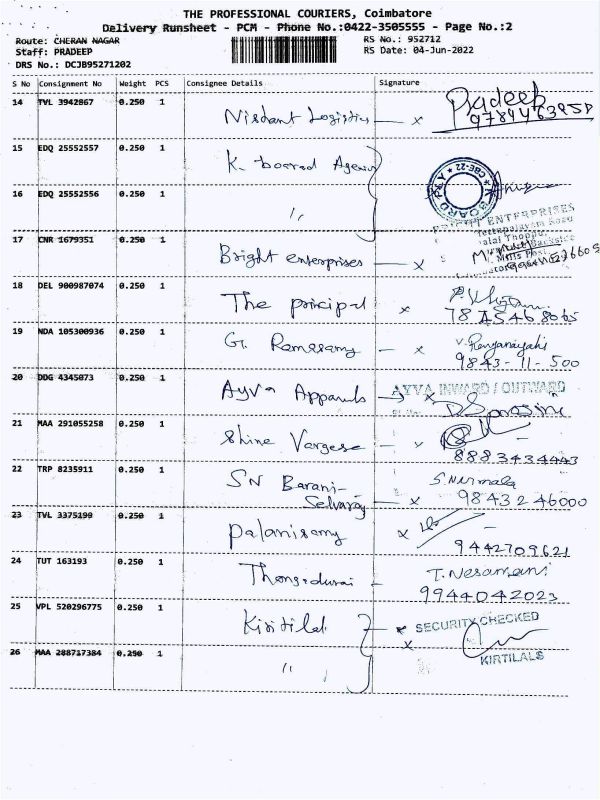 THE PROFESSIONAL COURIERS, Coimbatore
Delivery Runsheet - PCM - Phone No.:0422-3505555 - Page No.:2
Route: CHERAN NAGAR RS No.: 952712
Staff: PRADEEP RS Date: 04-Jun-2022
DRS No.: DCJB95271202
S No Consignment No Weight PCS Consignee Details Signature
14 TVL 3942867 0.250 1 Nishant Logistics - x Pradeep
15 EDQ 25552557 0.250 1 K. boared Agency
16 EDQ 25552556 0.250 1 "
K BOARD PLY * CBE-22 *
BRIGHT ENTERPRISES
Teetupalayam Road
Thoppu,
Mills Post
17 CNR 1679351 0.250 1 Bright enterprises - x
18 DEL 900987074 0.250 1 The principal x
19 NDA 105300936 0.250 1 G. Ramasamy - x V. Renganayahi
9843-11-500
20 DDG 4345073 0.250 1 Ayva Apparels x AYVA INWARD / OUTWARD
21 MAA 291055258 0.250 1 Shine Vargese - x
8883434443
22 TRP 8235911 0.250 1 SN Barani- S. Nirmala
Selvaraj - x 98432 46000
23 TVL 3375199 0.250 1 Palanisamy x
9442709621
24 TUT 163193 0.250 1 Thangadurai - T. Nesamani
9944042023
25 VPL 520296775 0.250 1 Kirtilal - x SECURITY CHECKED
x
26 MAA 288717384 0.250 1 " KIRTILALS